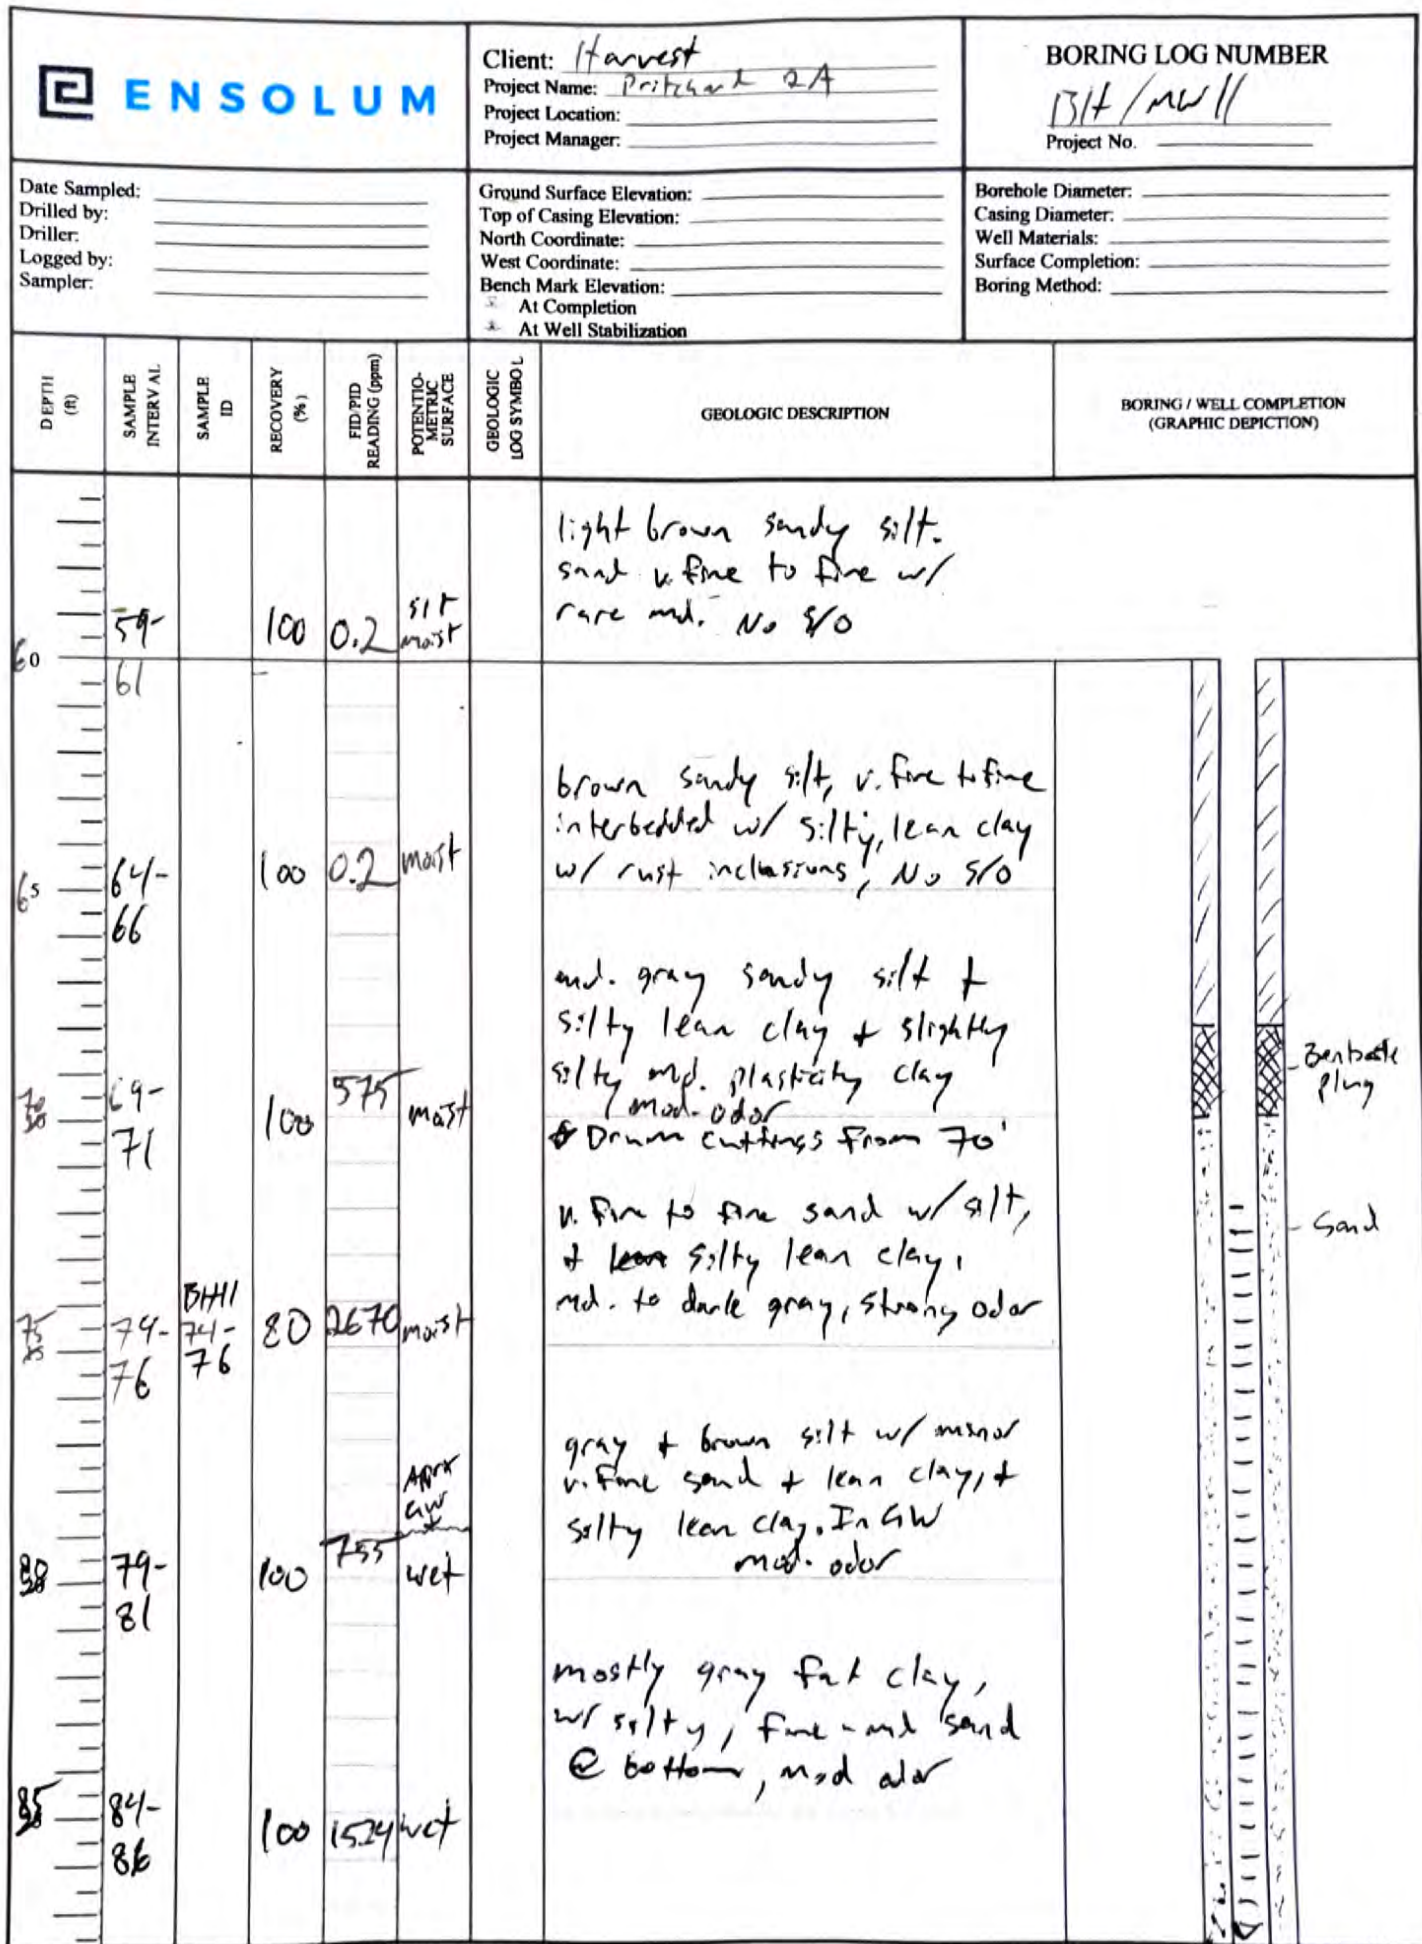 ENSOLUM
Client: Harvest
Project Name: Pritchard 2A
Project Location:
Project Manager:
BORING LOG NUMBER
BH/MW11
Project No.
Date Sampled:
Drilled by:
Driller:
Logged by:
Sampler:
Ground Surface Elevation:
Top of Casing Elevation:
North Coordinate:
West Coordinate:
Bench Mark Elevation:
At Completion
At Well Stabilization
Borehole Diameter:
Casing Diameter:
Well Materials:
Surface Completion:
Boring Method:
DEPTH
(ft)
SAMPLE
INTERVAL
SAMPLE
ID
RECOVERY
(%)
FID/PID
READING (ppm)
POTENTIO-
METRIC
SURFACE
GEOLOGIC
LOG SYMBOL
GEOLOGIC DESCRIPTION
BORING / WELL COMPLETION
(GRAPHIC DEPICTION)
light brown sandy silt.
sand v. fine to fine w/
rare md. No S/O
59-
61
100
0.2
slt
moist
60
brown sandy silt, v. fine to fine
interbedded w/ silty, lean clay
w/ rust inclusions, No S/O
65
64-
66
100
0.2
moist
md. gray sandy silt +
silty lean clay + slightly
silty md. plasticity clay
mod. odor
Drum cuttings from 70'
70
69-
71
100
575
moist
Bentonite
plug
v. fine to fine sand w/ silt,
+ silty lean clay,
md. to dark gray, strong odor
Sand
75
74-
76
BH11
74-
76
80
2670
moist
gray + brown silt w/ minor
v. fine sand + lean clay, +
silty lean clay. In GW
mod. odor
Aprx
GW
80
79-
81
100
755
wet
mostly gray fat clay,
w/ silty, fine-md sand
@ bottom, mod odor
85
84-
86
100
1524
wet